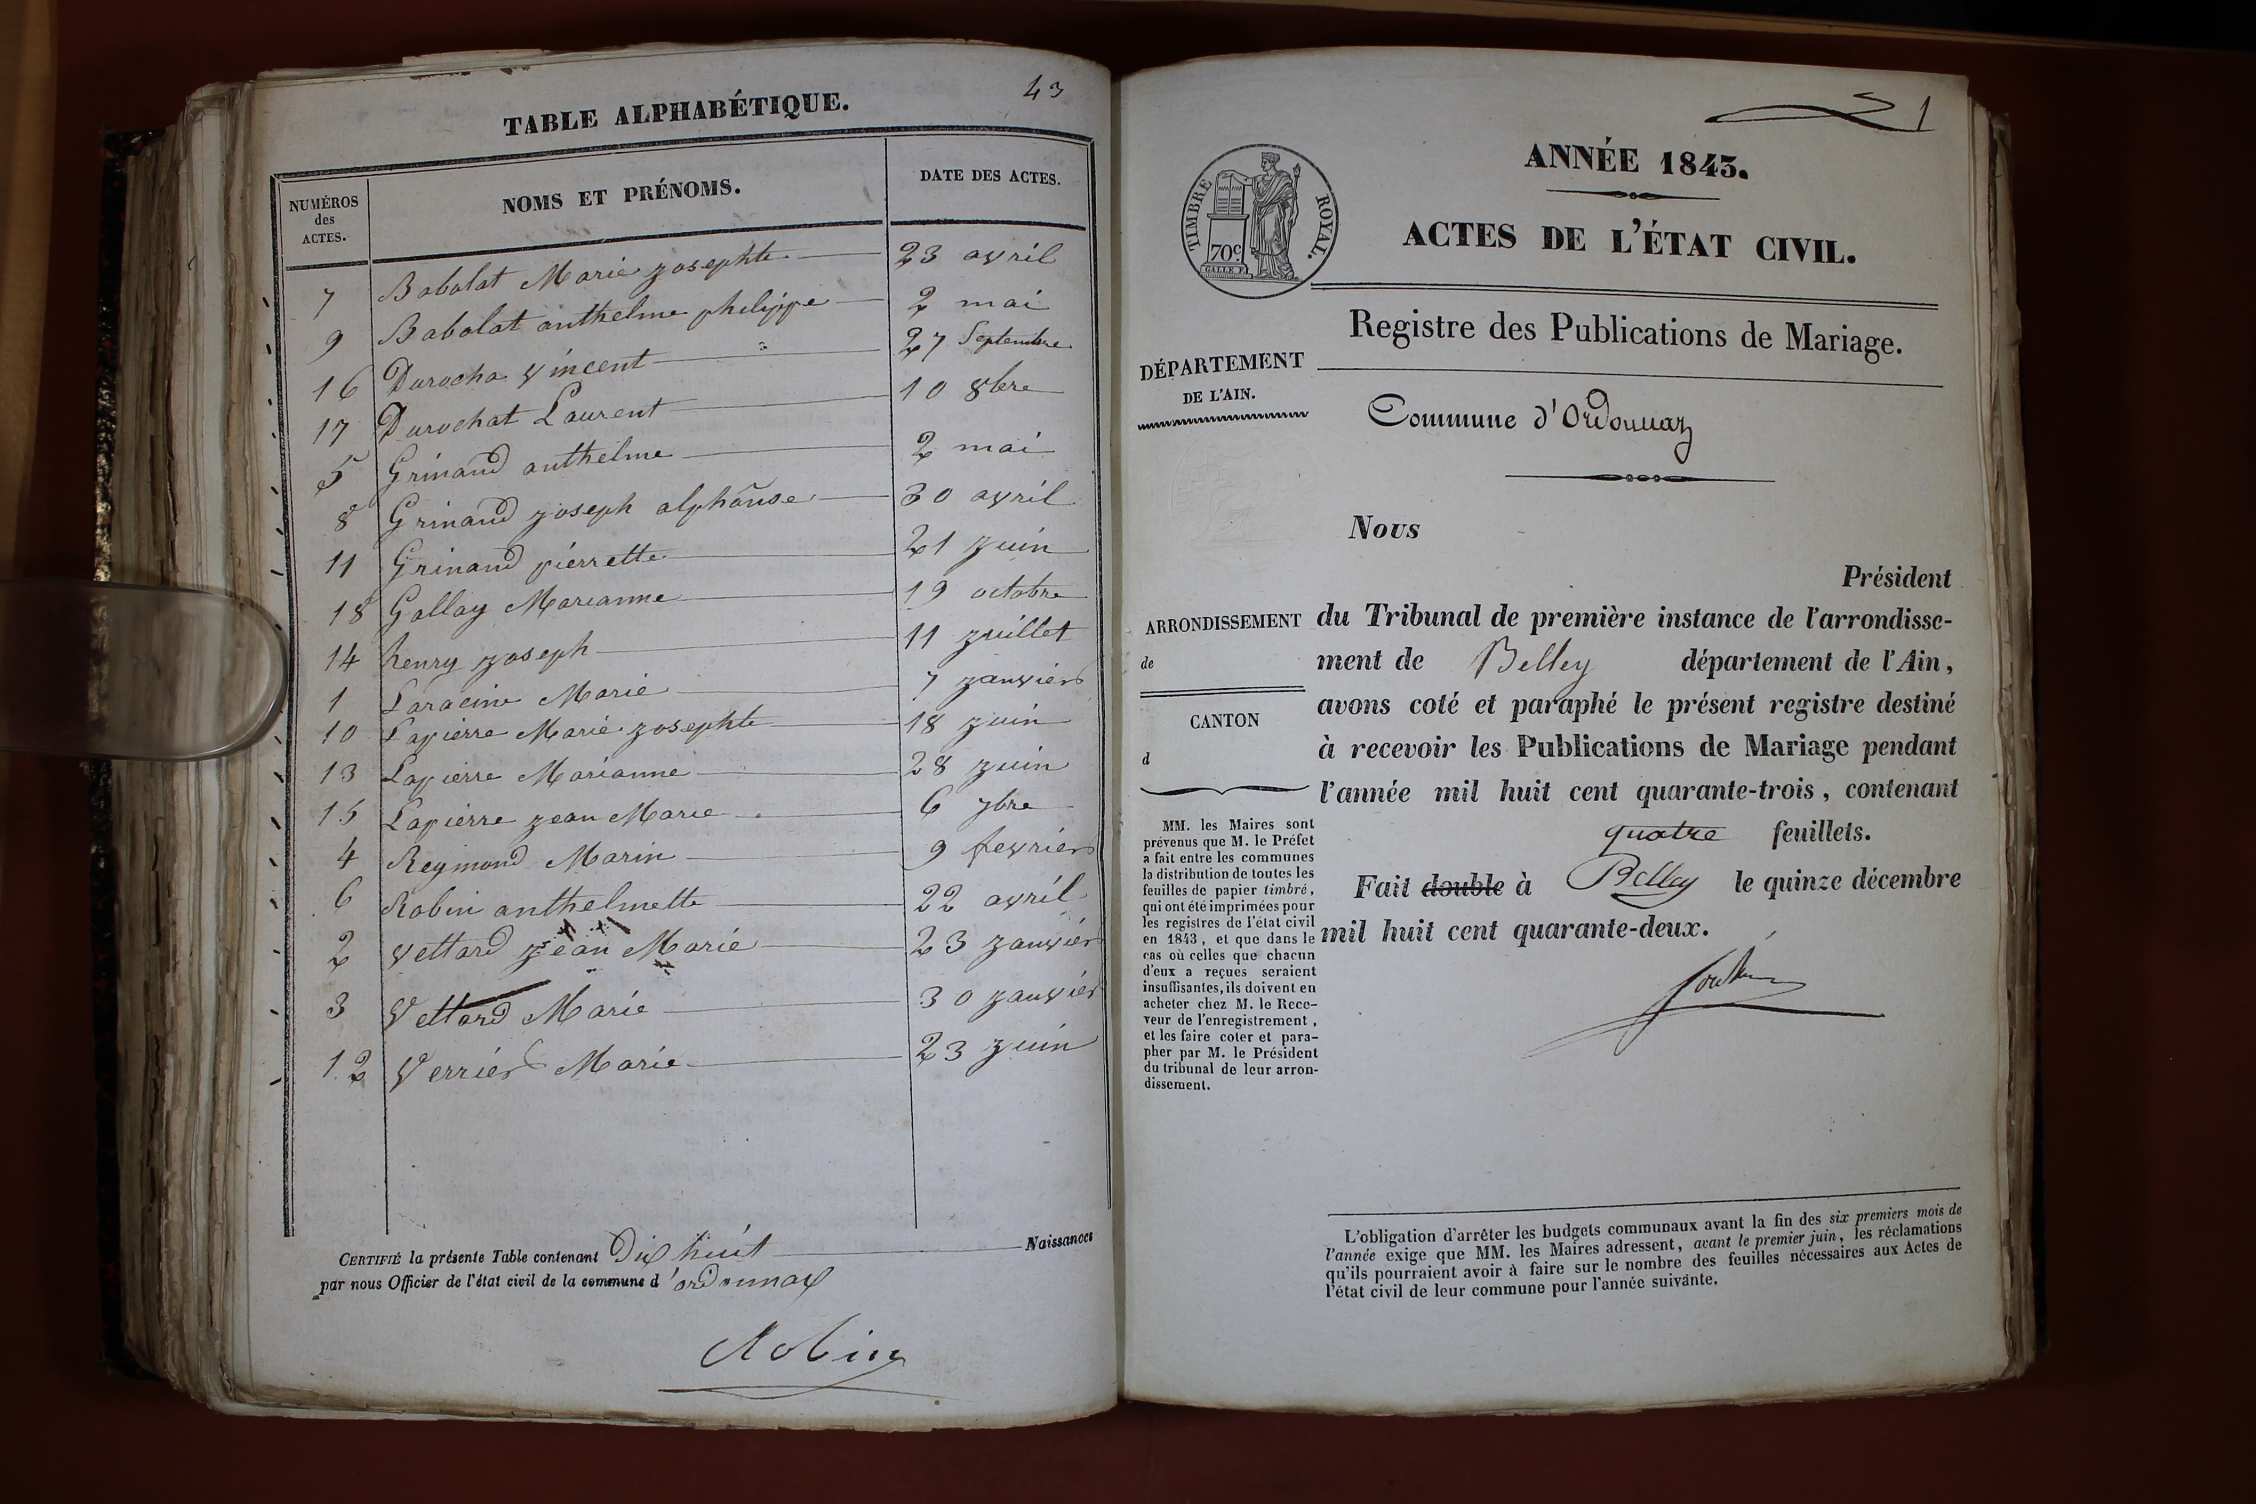 43
TABLE ALPHABÉTIQUE.
NUMÉROS
des
ACTES.
NOMS ET PRÉNOMS.
DATE DES ACTES.
7 Babolat Marie josephte 23 avril
9 Babolat anthelme philippe 2 mai
16 Durocha vincent 27 Septembre
17 Durochat Laurent 10 8bre
5 Grinand anthelme 2 mai
8 Grinand joseph alphonse 30 avril
11 Grinand pierrette 21 juin
18 Gallay Marianne 19 octobre
14 henry joseph 11 juillet
1 Laracine Marie 7 janvier
10 Lapierre Marie josephte 18 juin
13 Lapierre Marianne 28 juin
15 Lapierre jean Marie 6 7bre
4 Reymond Marin 9 fevrier
6 Robin anthelmette 22 avril
2 vettard jean Marie 23 janvier
3 Vettard Marie 30 janvier
12 Verrier Marie 23 juin
CERTIFIÉ la présente Table contenant Dix huit Naissances
par nous Officier de l'état civil de la commune d'ordonnax
Robin
1
ANNÉE 1843.
TIMBRE ROYAL.
70c
ACTES DE L'ÉTAT CIVIL.
Registre des Publications de Mariage.
DÉPARTEMENT
DE L'AIN.
Commune d'Ordonnaz
Nous
Président
ARRONDISSEMENT
de
CANTON
d
du Tribunal de première instance de l'arrondisse-
ment de Belley département de l'Ain,
avons coté et paraphé le présent registre destiné
à recevoir les Publications de Mariage pendant
l'année mil huit cent quarante-trois, contenant
quatre feuillets.
Fait double à Belley le quinze décembre
mil huit cent quarante-deux.
MM. les Maires sont
prévenus que M. le Préfet
a fait entre les communes
la distribution de toutes les
feuilles de papier timbré,
qui ont été imprimées pour
les registres de l'état civil
en 1843, et que dans le
cas où celles que chacun
d'eux a reçues seraient
insuffisantes, ils doivent en
acheter chez M. le Rece-
veur de l'enregistrement,
et les faire coter et para-
pher par M. le Président
du tribunal de leur arron-
dissement.
L'obligation d'arrêter les budgets communaux avant la fin des six premiers mois de
l'année exige que MM. les Maires adressent, avant le premier juin, les réclamations
qu'ils pourraient avoir à faire sur le nombre des feuilles nécessaires aux Actes de
l'état civil de leur commune pour l'année suivante.